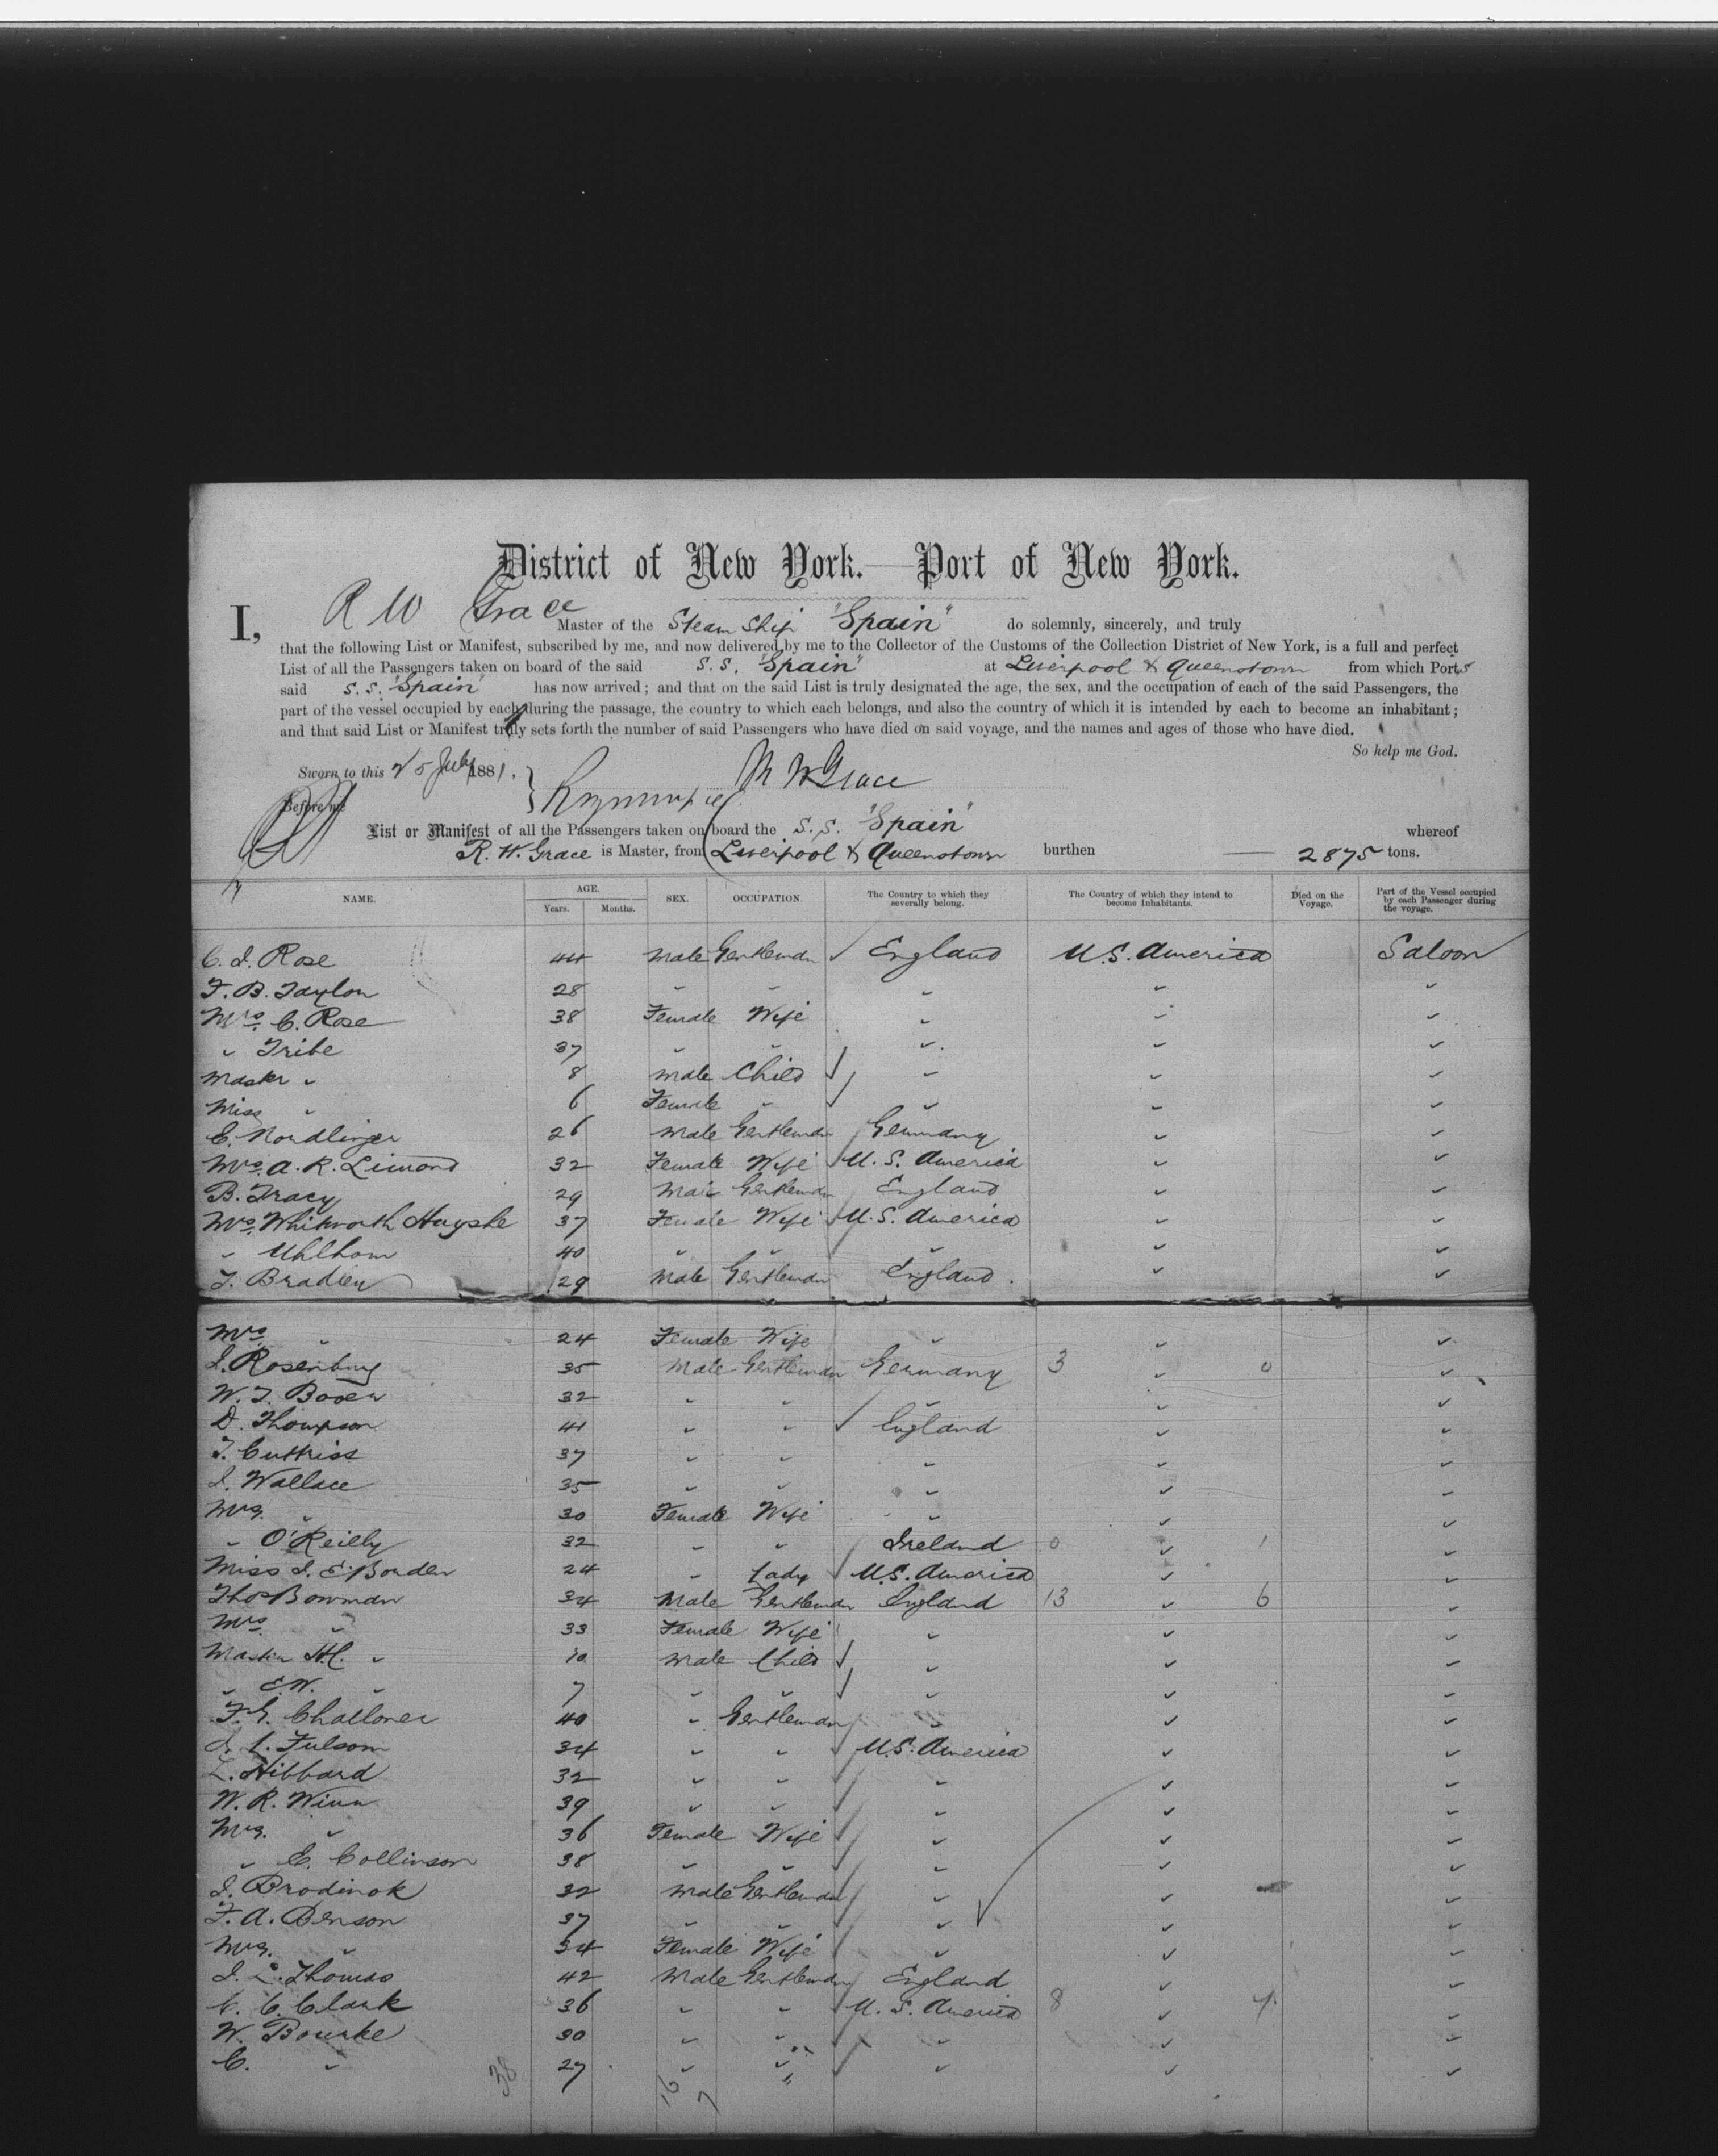 District of New York.—Port of New York.
I, R W Grace Master of the Steam Ship "Spain" do solemnly, sincerely, and truly
that the following List or Manifest, subscribed by me, and now delivered by me to the Collector of the Customs of the Collection District of New York, is a full and perfect
List of all the Passengers taken on board of the said S.S. "Spain" at Liverpool & Queenstown from which Ports
said S.S. "Spain" has now arrived; and that on the said List is truly designated the age, the sex, and the occupation of each of the said Passengers, the
part of the vessel occupied by each during the passage, the country to which each belongs, and also the country of which it is intended by each to become an inhabitant;
and that said List or Manifest truly sets forth the number of said Passengers who have died on said voyage, and the names and ages of those who have died.
So help me God.
Sworn to this 25 July 1881. R W Grace
Before me
List or Manifest of all the Passengers taken on board the S.S. "Spain" whereof
R. W. Grace is Master, from Liverpool & Queenstown burthen — 2875 tons.
NAME. AGE. Years. Months. SEX. OCCUPATION. The Country to which they severally belong. The Country of which they intend to become Inhabitants. Died on the Voyage. Part of the Vessel occupied by each Passenger during the voyage.
C. J. Rose 44 Male Gentleman England U.S. America Saloon
F. B. Taylor 28 " " " " "
Mrs. C. Rose 38 Female Wife " " "
" Tribe 37 " " " " "
Master " 8 Male Child " " "
Miss " 6 Female " " " "
E. Nordlinger 26 Male Gentleman Germany " "
Mrs. A. R. Limond 32 Female Wife U.S. America " "
B. Tracy 29 Male Gentleman England " "
Mrs. Whitworth 37 Female Wife U.S. America " "
" Uhlhom 40 " " " " "
T. Bradley 29 Male Gentleman England " "
Mrs. " 24 Female Wife " " "
I. Rosenburg 35 Male Gentleman Germany 3 " 0 "
W. T. 32 " " " " "
D. Thompson 41 " " England " "
T. Cuttriss 37 " " " " "
J. Wallace 35 " " " " "
Mrs. " 30 Female Wife " " "
" O'Reilly 32 " " Ireland 0 " 1 "
Miss J. E. Borden 24 " Lady U.S. America " "
Thos Bowman 34 Male Gentleman England 13 " 6 "
Mrs. " 33 Female Wife " " "
Master H.C. " 10 Male Child " " "
" E.W. " 7 " " " " "
F. G. Challoner 40 " Gentleman " " "
Fulsom 34 " " U.S. America " "
L. Hibbard 32 " " " " "
W. R. Winn 39 " " " " "
Mrs. " 36 Female Wife " " "
" E. Collinson 38 " " " " "
J. Brodinok 32 Male Gentleman " " "
F. A. Benson 37 " " " " "
Mrs. " 34 Female Wife " " "
J. L. Thomas 42 Male Gentleman England " "
C. C. Clark 36 " " U.S. America 8 " 4 "
W. Bourke 30 " " " " "
C. " 27 " " " " "
38 16 7